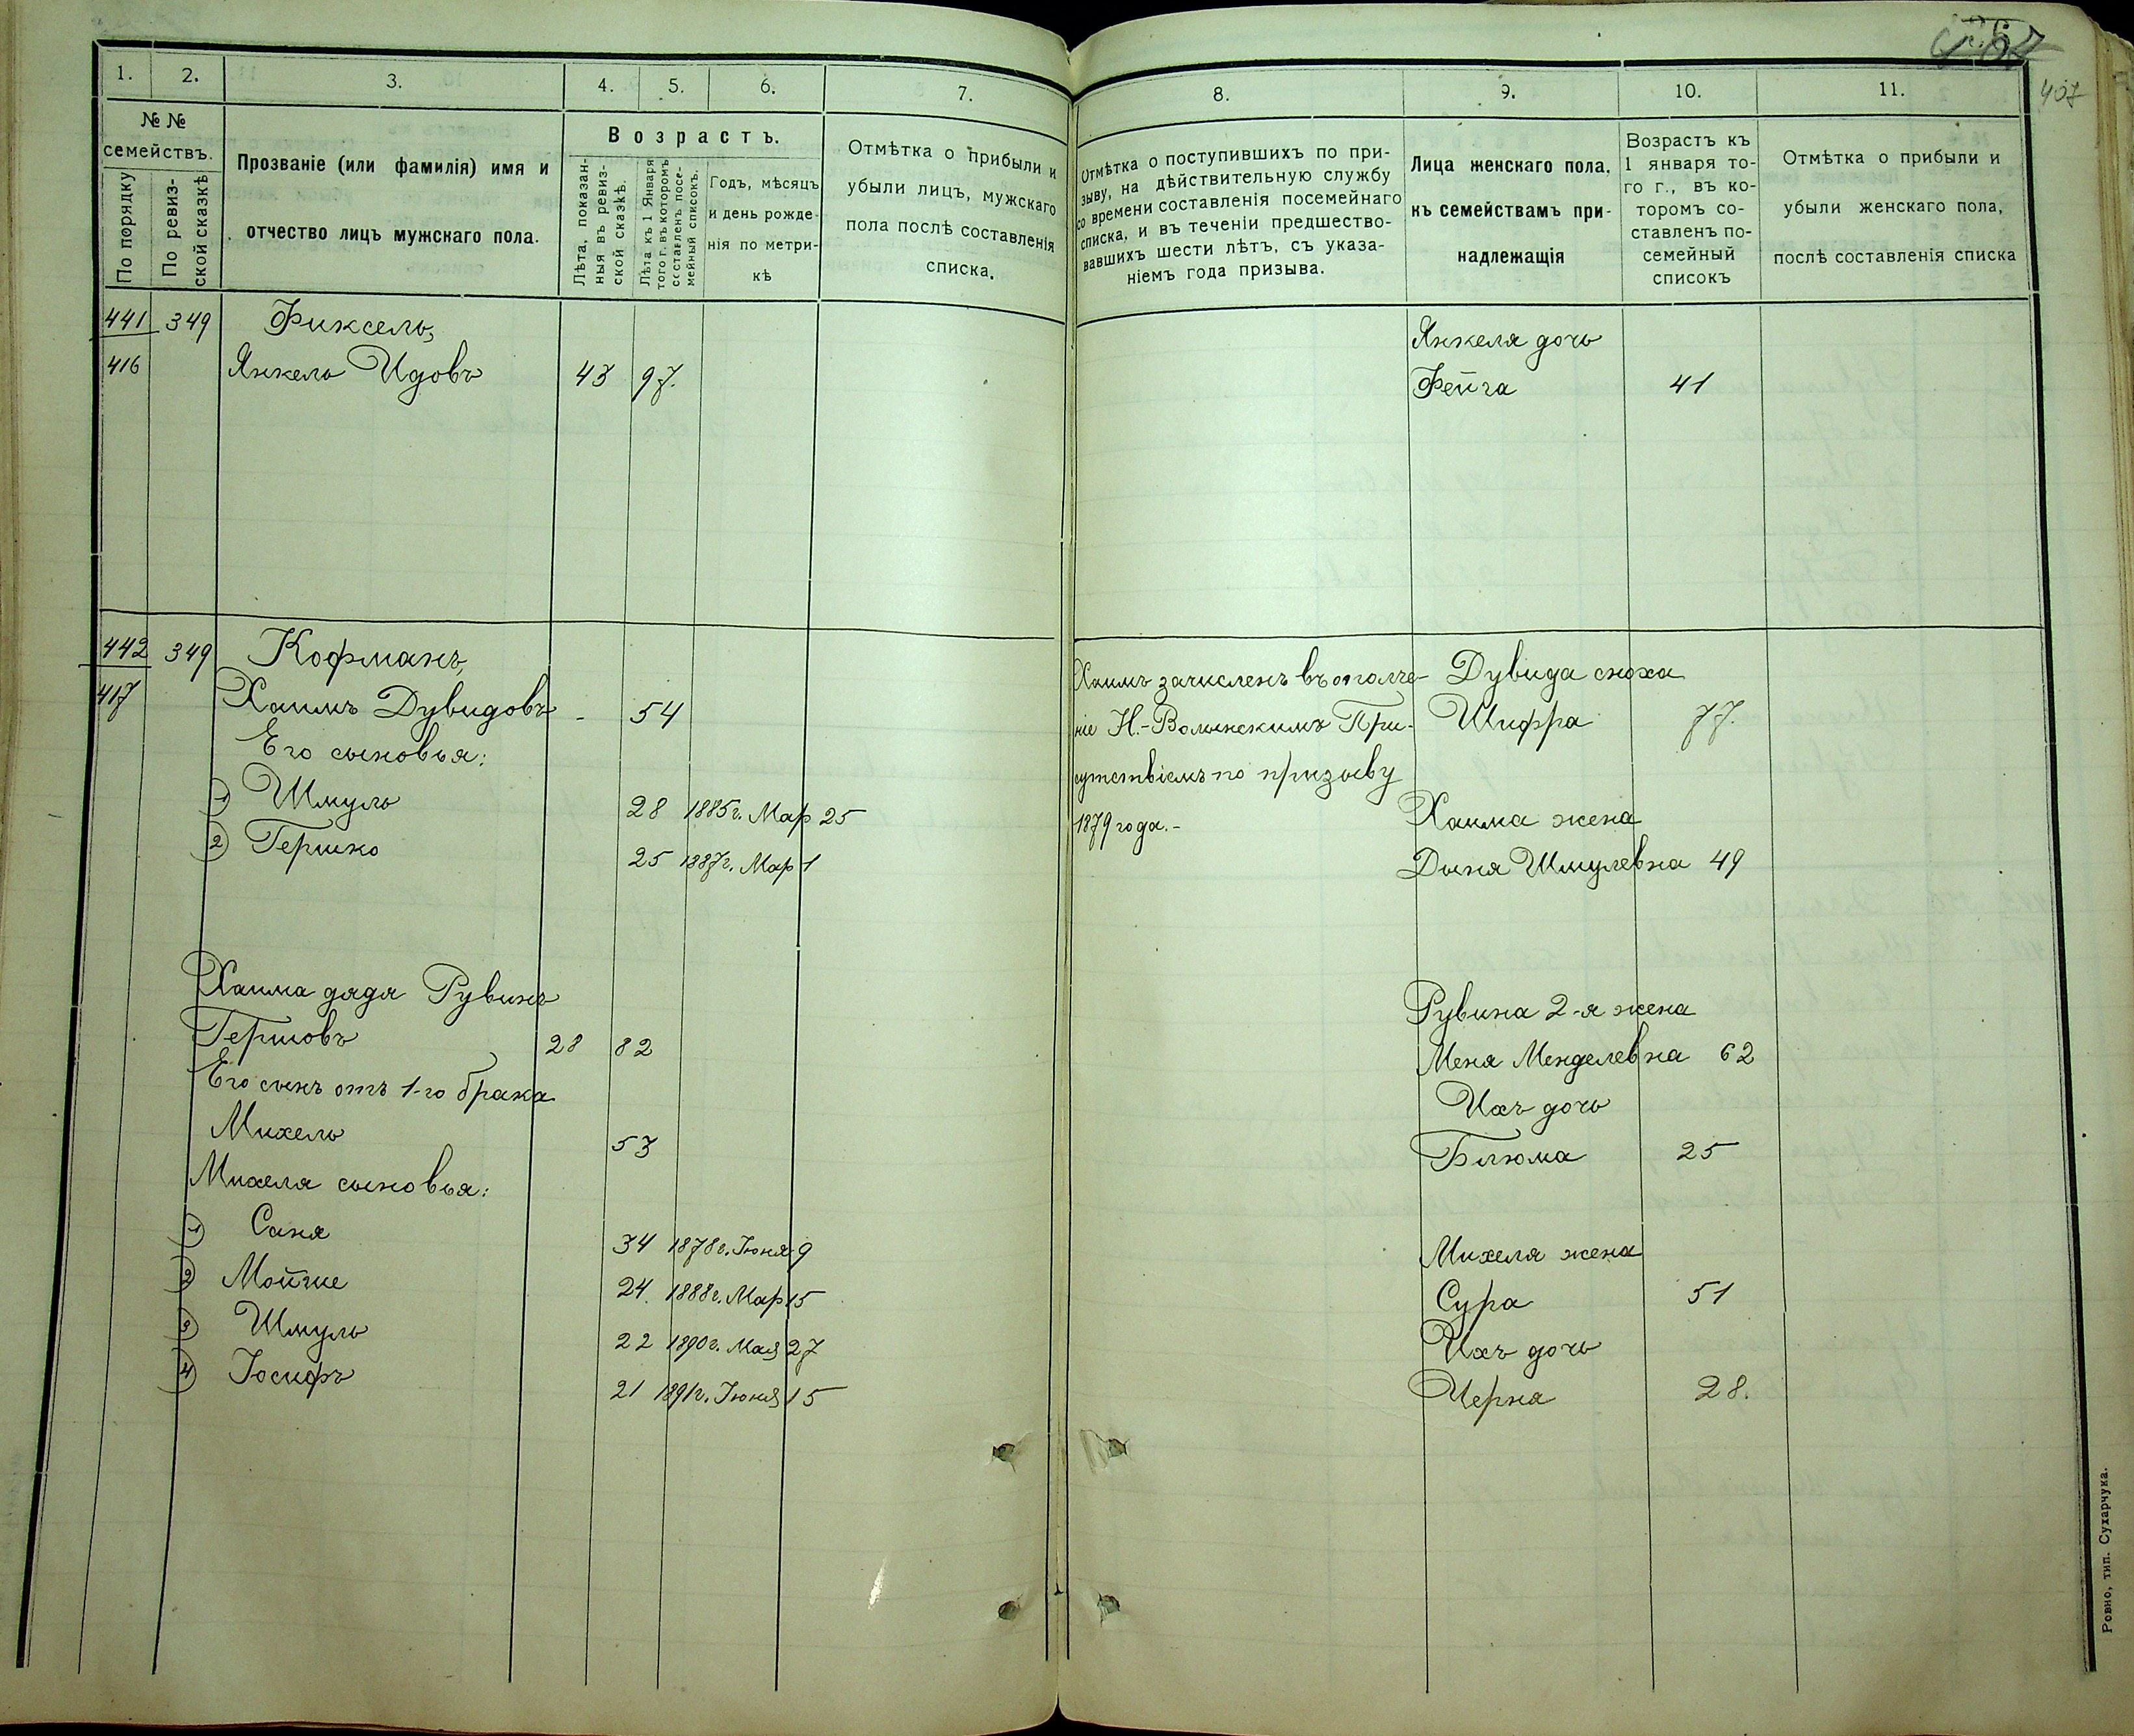 407
1.
2.
3.
4.
5.
6.
7.
№ №
семействъ.
По порядку
По ревиз-
ской сказкѣ
Прозваніе (или фамилія) имя и
отчество лицъ мужскаго пола.
Возрастъ.
Лѣта, показан-
ныя въ ревиз-
ской сказкѣ.
Лѣта къ 1 Января
того г. въ которомъ
составленъ посе-
мейный списокъ.
Годъ, мѣсяцъ
и день рожде-
нія по метри-
кѣ
Отмѣтка о прибыли и
убыли лицъ, мужскаго
пола послѣ составленія
списка.
441 349 Фиксель,
416 Янкель Идовъ 43 97.
442 349 Кофманъ,
417 Хаимъ Дувидовъ - 54
Его сыновья:
1) Шмуль 28 1885г. Мар 25
2) Гершко 25 1887г. Мар 1
Хаима дядя Рувинъ
Гершовъ 28 82
Его сынъ отъ 1-го брака
Михель 53
Михеля сыновья:
1) Саня 34 1878г. Іюня 9
2) Мойше 24. 1888г. Мар 15
3) Шмуль 22 1890г. Мая 27
4) Іосифъ 21 1891г. Іюня 15
8.
9.
10.
11.
Отмѣтка о поступившихъ по при-
зыву, на дѣйствительную службу
со времени составленія посемейнаго
списка, и въ теченіи предшество-
вавшихъ шести лѣтъ, съ указа-
ніемъ года призыва.
Лица женскаго пола,
къ семействамъ при-
надлежащія
Возрастъ къ
1 января то-
го г., въ ко-
торомъ со-
ставленъ по-
семейный
списокъ
Отмѣтка о прибыли и
убыли женскаго пола,
послѣ составленія списка
Янкеля дочь
Фейга 41
Хаимъ зачисленъ въ ополче-
ніе Н.-Волынскимъ При-
сутствіемъ по призыву
1879 года.-
Дувида сноха
Шифра 77.
Хаима жена
Дыня Шмулевна 49
Рувина 2-я жена
Меня Менделевна 62
Ихъ дочь
Блюма 25
Михеля жена
Сура 51
Ихъ дочь
Черна 28.
Ровно, тип. Сухарчука.